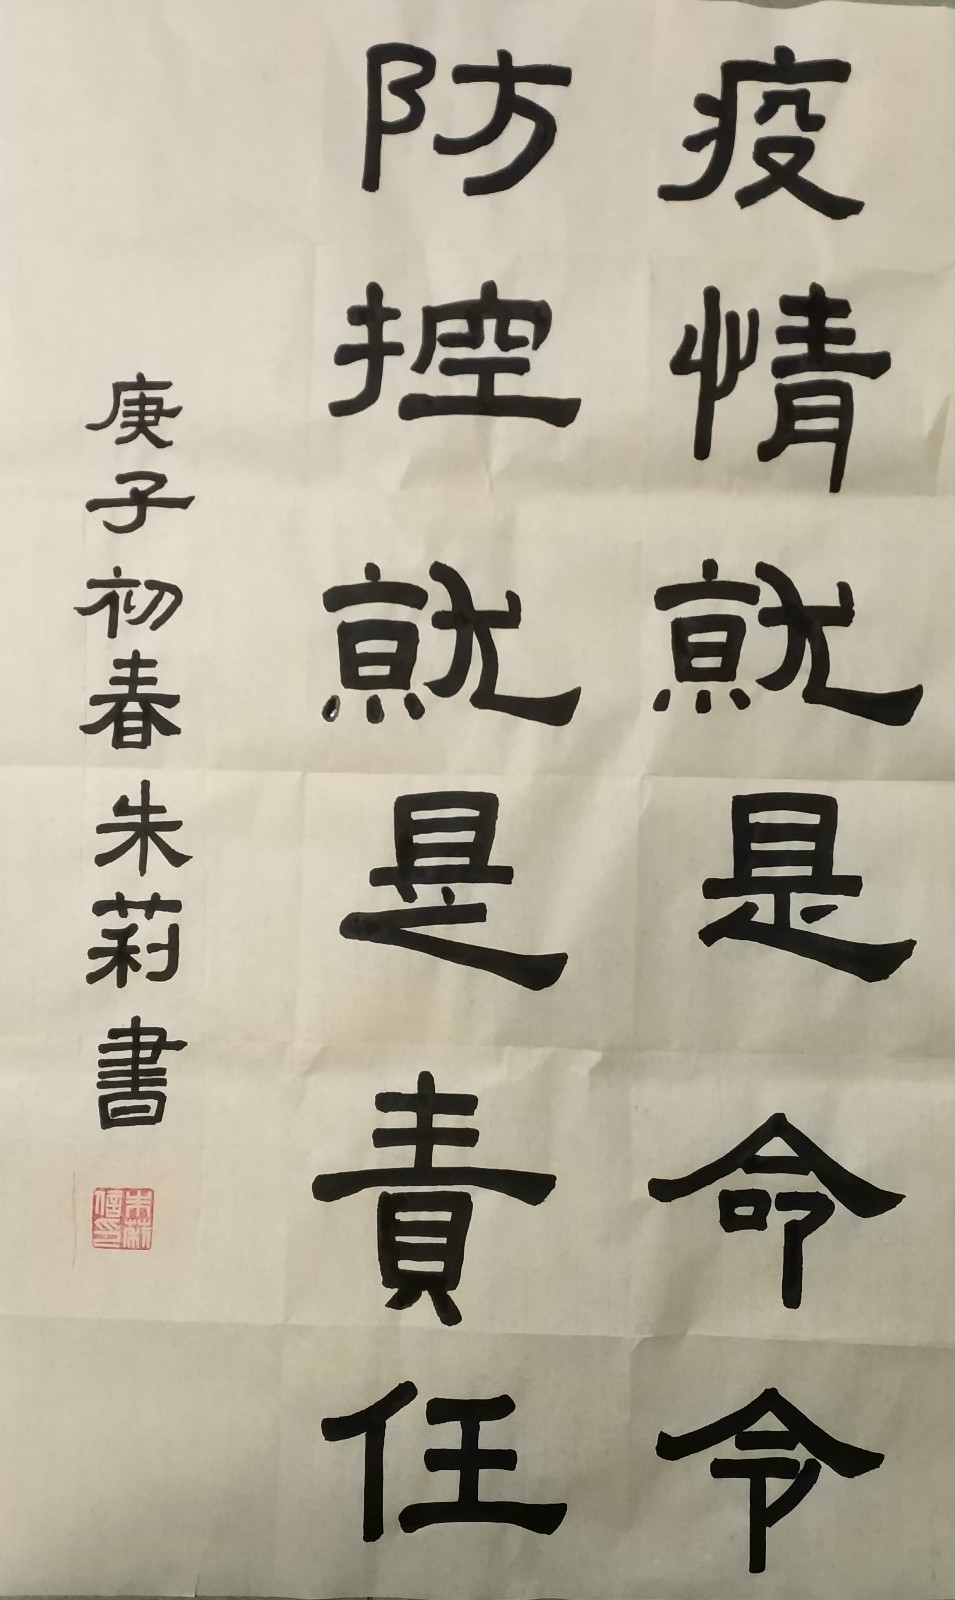 疫情就是命令
防控就是責任
庚子初春朱莉書